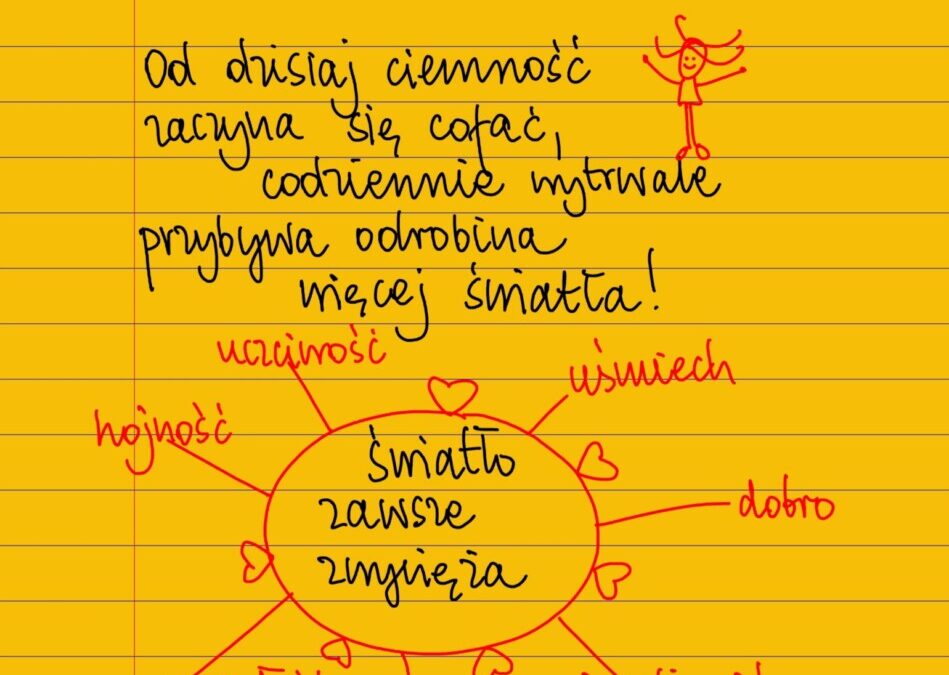 Od dzisiaj ciemność
zaczyna się cofać,
codziennie wytrwale
przybywa odrobina
więcej światła!
uczciwość
uśmiech
hojność
światło
zawsze
zwycięża
dobro